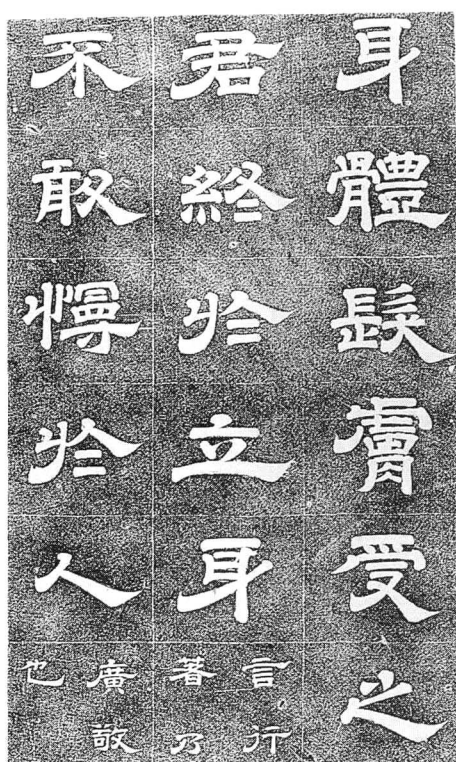 身體髮膚受之
君終於立身言行著乃
不敢慢於人廣敬也